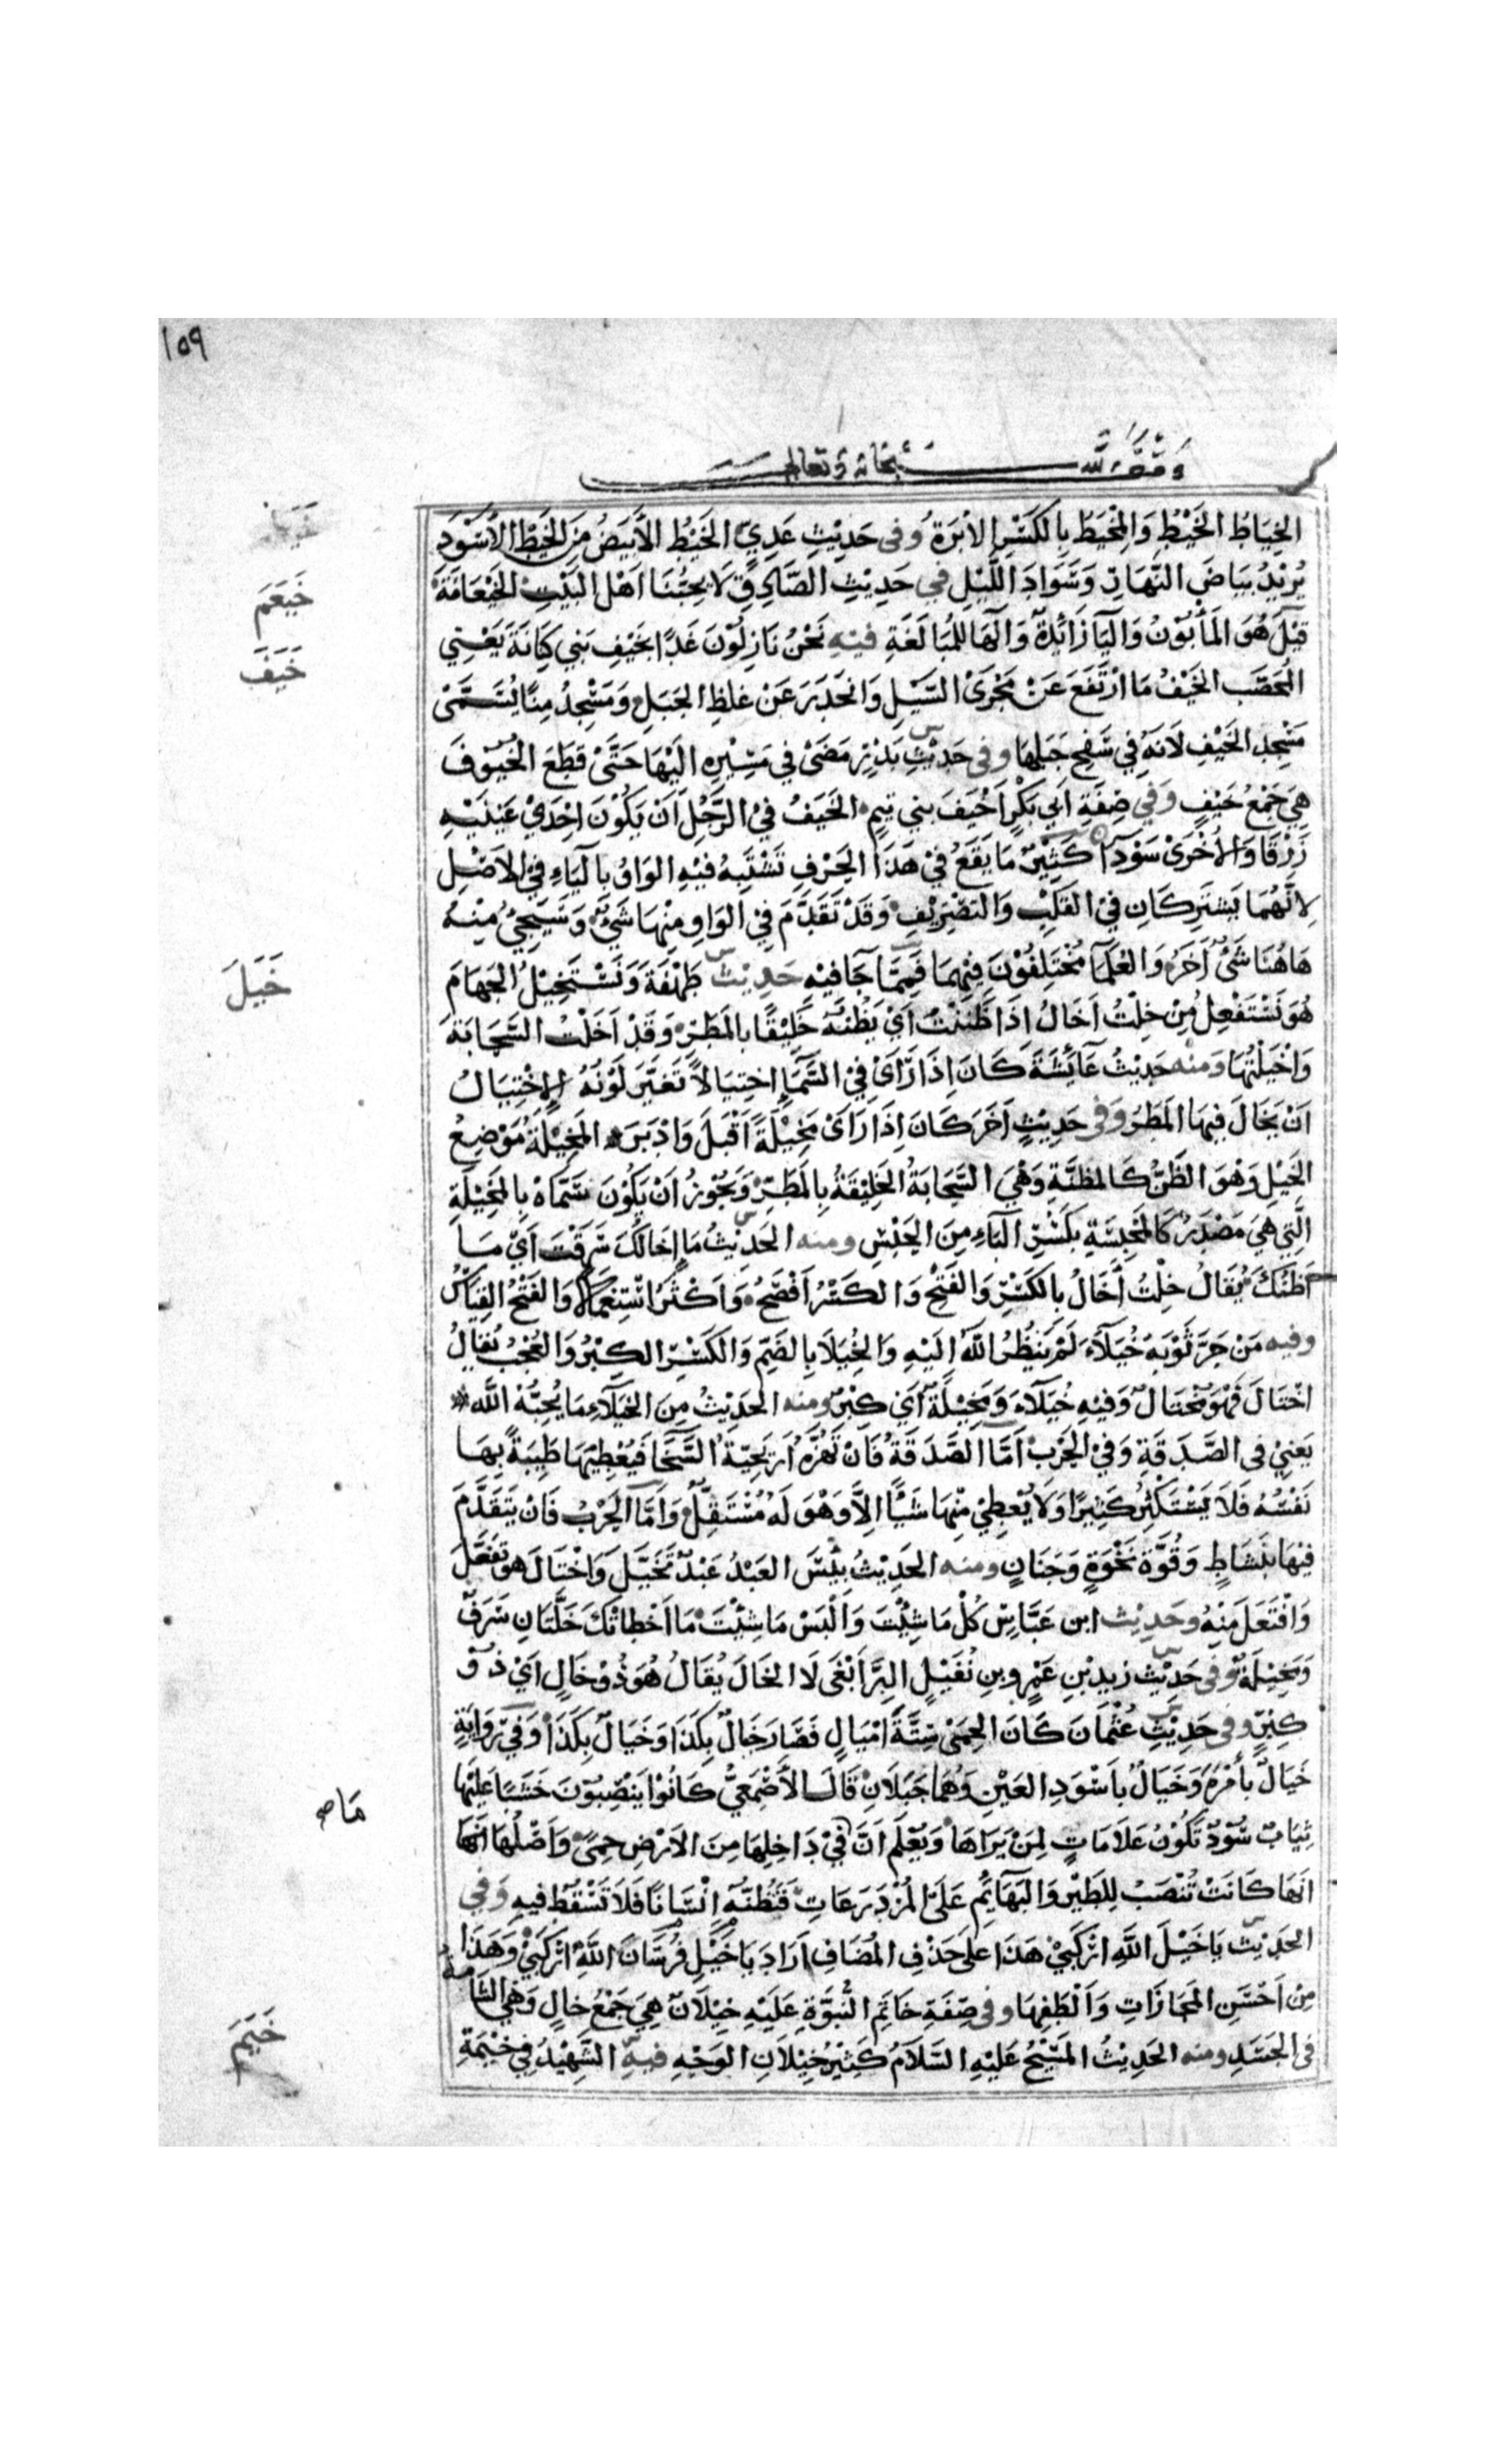 ١٥٩
وقف لله سبحانه وتعالى
الخِيَاطُ الخَيْطُ وَالمِخْيَطُ بِالكَسْرِ الاِبْرَةُ وَفى حَدِيْثِ عَدِيٍّ الخَيْطُ الأَبْيَضُ مِنَ الخَيْطِ الأَسْوَدِ
يُرِيْدُ بَيَاضَ النَّهَارِ وَسَوَادَ اللَّيْلِ في حَدِيْثِ الصَّادِقِ لَا يُحِبُّنَا اَهْلَ البَيْتِ الخَيْعَامَةُ
خَيْعَمَ
قِيْلَ هُوَ المَأْبُوْنُ وَاليَا زَائِدَةٌ وَالهَا لِلمُبَالَغَةِ فيْهِ نَحْنُ نَازِلُوْنَ غَدًا بخَيْفِ بَني كِنَانَةَ يَعْنِي
خَيَفَ
المُحَصَّب الخَيْفُ مَا ارْتَفَعَ عَنْ مَجْرَى السَّيْلِ وَانحَدَرَ عَنْ غِلَظِ الجَبَلِ وَمَسْجِدُ مِنًا يُسَمَّى
مَسْجِد الخَيْفِ لاَنَّهُ فِي سَفْحِ جَبَلِهَا وفى حَدِيْثِ بَدْرٍ مَضَىْ في مَسِيْرِهِ اِلَيْهَا حَتَّى قَطَعَ الخُيُوْفَ
هِيَ جَمْعُ خَيْفٍ وَفي صِفَةِ اَبي بَكْرٍ اَخْيَفَ بني تيمٍ الخَيَفُ فيْ الرَّجُلِ اَنْ يَكُوْنَ اِحْدَى عَيْنَيْهِ
زَرْقَا وَالاُخْرَىْ سَوْدَا كَثِيْرٌ مَا يَقَعُ فيْ هَذَا الحَرْفِ تَشْتَبِهُ فيْهِ الوَاوُ بِاليَاءِ فيْ الاَصْلِ
خَيَلَ
لِاَنَّهُمَا يَشْتَرِكَانِ فيْ القَلْبِ وَالتَصْرِيْفِ وَقَدْ تَقَدَّمَ فِي الوَاوِ مِنْهَا شَيْءٌ وَسَيَجِيْءُ مِنْهُ
هَاهُنَا شَيْءٌ آخَرُ وَالعُلَمَا مُخْتَلِفُوْنَ فِيْهِمَا فَمِمَّا جَا فيْهِ حَدِيْثُ طَهْفَةَ وَنَسْتَخِيْلُ الجَهَامَ
هُوَ نَسْتَفْعِلُ مِنْ خِلْتُ اَخَالُ اِذَا ظَنَنْتُ اَيْ نَظُنُّهُ خَلِيْقًا بِالمَطَرِ وَقَدْ اَخَلْتُ السَّحَابَةَ
وَاخْيَلْتُهَا ومنه حَدِيْثُ عَائِشَةَ كَانَ اِذَا رَاَى فيْ السَّمَاءِ اِختِيَالاً تَغَيَّرَ لَوْنُهُ الاِخْتِيَالُ
اَنْ يُخَالَ فِيْهَا المَطَرُ وَفى حَدِيْثٍ اَخَرَ كَانَ اِذَا رَاَىْ مَخِيْلَةً اَقْبَلَ وَاَدْبَرَ المَخِيْلَةُ مَوْضِعُ
الخَيْلِ وَهُوَ الظَّنُّ كَالمَظِنَّةِ وَهْيَ السَّحَابَةُ الخَلِيْقَةُ بِالمَطَرِ وَيَجُوْزُ اَنْ يَكُوْنَ سَمَّاهْ بِالمَخِيْلَةِ
الَّتِي هِيَ مَصْدَرٌ كَالمَحْبِسَةِ بِكَسْرِ البَاءِ مِنَ الحَبْسِ ومنه الحَدِيْثُ مَا اِخَالُكَ سَرَقْتَ اَيْ مَا
اَظُنُّكَ يُقَالُ خِلْتُ اِخَالُ بِالكَسْرِ وَالفَتْحِ وَالكَسْرُ اَفْصَحُ وَاَكْثَرُ اسْتِعْمَالاً وَالفَتْحُ القِيَاسُ
وفيه مَنْ جَرَّ ثَوْبَهُ خُيَلَآءَ لَمْ يَنْظُرِ اللهُ اِلَيْهِ وَالخُيَلَا بِالضَّمِّ وَالكَسْرِ الكِبْرُ وَالعُجْبُ يُقَالُ
اخْتَالَ فَهُوَ مُخْتَالٌ وَفِيْهِ خُيَلَآءُ وَمَخِيْلَةٌ اَيْ كِبْرٌ ومنه الحَدِيْثُ مِنَ الخُيَلَآءِ مَا يُحِبُّهُ اللَّه
يَعْنِيْ فى الصَّدَقَةِ وَفيْ الحَرْبْ اَمَّا الصَّدَقَةُ فَاَنْ تَهُزَّهُ اَرْيَحِيَّةُ السَّخَا فَيُعْطِيْهَا طَيِّبَةً بِهَا
نَفْسُهُ فَلَا يَسْتَكْثِرُ كَثِيرًا وَلَا يُعْطِيْ مِنْهَا شَيْئًا اِلَّا وَهْوَ لَهُ مُسْتَقِلٌّ وَاَمَّا الحَرْبُ فَاَنْ يَتَقَدَّمَ
فيْهَا بِنَشَاطٍ وَقُوَّةِ نَخْوَةٍ وَجَنَانٍ ومنه الحَدِيْثُ بِئْسَ العَبْدُ عَبْدٌ تَخَيَّلَ وَاخْتَالَ هو تَفَعَّلَ
وَافْتَعَلَ مِنْهُ وحَدِيْث ابن عَبَّاسٍ كُلْ مَا شِئْتَ وَالْبَسْ مَا شِئْتَ مَا اَخْطَاَتْكَ خَلَّتَانِ سَرَفٌ
وَمَخِيْلَةٌ وفى حَدِيْثِ زيدِ بْنِ عَمْرِو بنِ نُفَيْلٍ البِرَّ اَبْغَى لَا الخَالَ يُقَالُ هُوَ ذُوْ خَالٍ اَيْ ذُوْ
كِبْرٍ وفى حَدِيْثِ عُثْمَانَ كَانَ الحِمَىْ سِتَّةَ اَمْيَالٍ فَصَارَ خَيَالٌ بِكَذَا وَخَيَالٌ بِكَذَا وَفيْ رِوَايَةٍ
خَيَالٌ بِأَمْرَةَ وَخَيَالٌ بِاَسْوَدِ العَيْنِ وَهُمَا جَبَلَانِ قَالَ الأَصْمَعِيُّ كَانُوْا يَنْصِبُوْنَ خَشَبًا عَلَيْهَا
ثِيَابٌ سُوْدٌ تَكُوْنُ عَلَامَاتٍ لِمَنْ يَرَاهَا وَيَعْلَم اَنَّ فيْ دَاخِلِهَا مِنَ الاَرْضِ حِمًى وَاَصْلُهَا اَنَّهَا
اَنَّهَا كَانَتْ تُنْصَبُ لِلطَّيْرِ وَالبَهَآئِمِ عَلَى المُزْدَرَعَاتِ فَتَظُنُّهُ اِنْسَانًا فَلَا تَسْقُطُ فيهِ وَفِي
الحَدِيْثِ يَا خَيْلَ اللهِ ارْكَبِيْ هَذَا عَلَى حَذْفِ المُضَافِ اَرَادَ يَا خَيْلَ فُرْسَانِ اللهِ ارْكَبِيْ وَهَذَا
مِنْ اَحْسَنِ المَجَازَاتِ وَاَلْطَفِهَا وفى صِفَةِ خَاتَمِ النُّبُوَّةِ عَلَيْهِ خِيْلَانٌ هِيَ جَمْعُ خَالٍ وَهْيَ الشَّامَةُ
خَيَمَ
فى الجَسَدِ ومنه الحَدِيْثُ المَسِيْحُ عَلَيْهِ السَّلَامُ كَثِيْرُ خِيْلَانِ الوَجْهِ فيهِ الشَّهِيْدُ فِيْ خَيْمَةِ